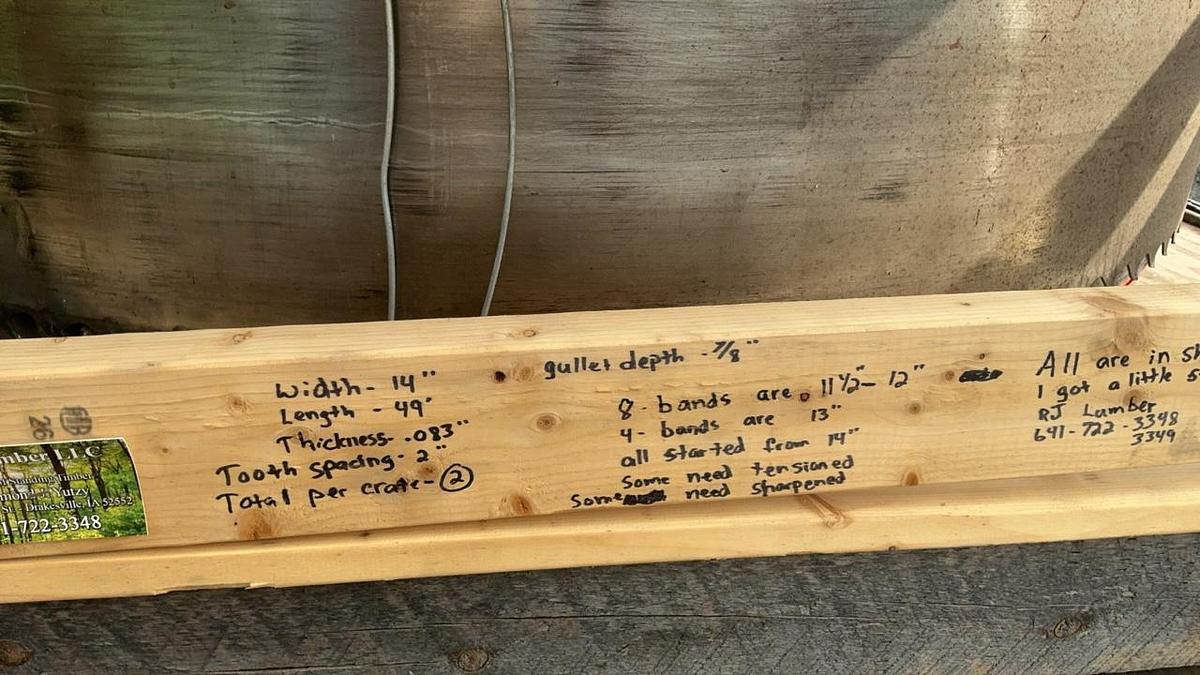 Width - 14"
Length - 49'
Thickness - .083"
Tooth spacing - 2"
Total per crate - 2
gullet depth - 7/8"
8 - bands are 11 1/2" - 12"
4 - bands are 13"
all started from 14"
Some need tensioned
Some need sharpened
All are in
I got a little
RJ Lumber
641-722-3348
3349
26
LLC
Standing Timber
Yutzy
St. Drakesville, IA 52552
1-722-3348